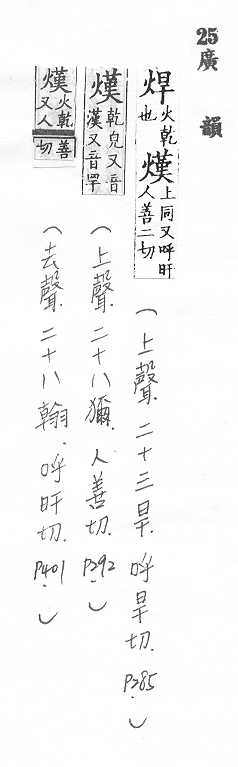 25廣韻
焊火乾也
熯上同又呼旰人善二切
(上聲.二十三旱.呼旱切.P285.)
熯乾皃又音漢又音罕
(上聲.二十八獮.人善切.P292.)
熯火乾又人善切
(去聲.二十八翰.呼旰切.P401.)